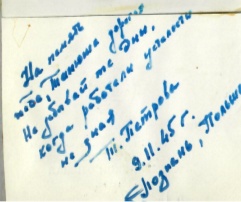 На память
тебе, Танюша дорогая
Не забывай те дни,
когда работали усталости
не зная
Т. Петрова
9.11.45 г.
г. Познань, Польша